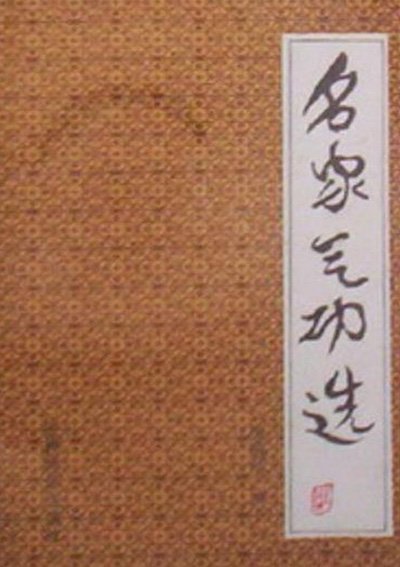 名家气功选